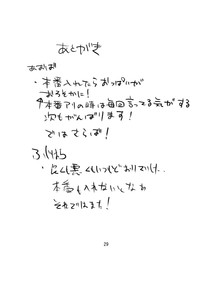 あとがき
あおば
・本番入れたらおっぱいが
おろそかに!
本番アリの時は毎回言ってる気がする
次もがんばります!
ではさらば!
良くも悪くもいつもどおりでした。
本番も入れないとなあ
それではまた!
29